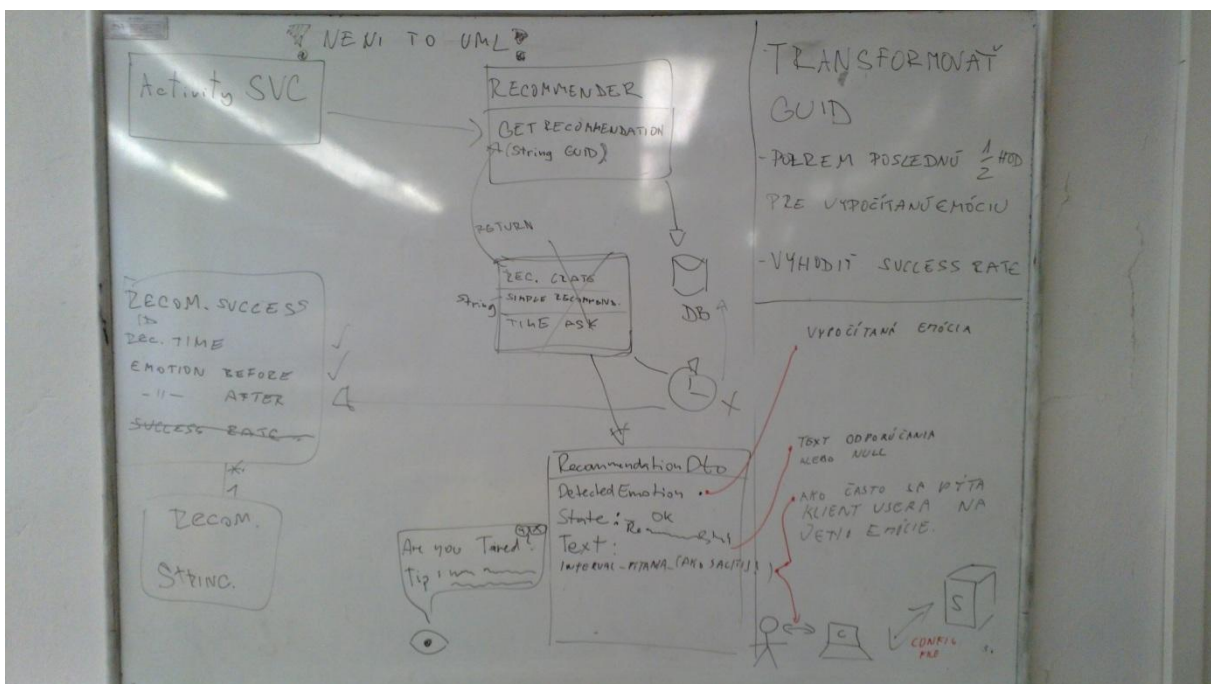 NENI TO UML?
Activity SVC
RECOMMENDER
GET RECOMMENDATION
(String GUID)
RETURN
REC.
SIMPLE RECOMMEND.
String
TIME ASK
DB
RECOM. SUCCESS
ID
REC. TIME
EMOTION BEFORE
-"- AFTER
SUCCESS RATE
*
1
RECOM.
STRING.
RecommendationDto
DetectedEmotion
State: OK
Text:
Are you Tared?
Tip:
TRANSFORMOVAŤ
GUID
- POZREM POSLEDNÚ 1/2 HOD
PRE VYPOČÍTANÚ EMÓCIU
- VYHODIŤ SUCCESS RATE
VYPOČÍTANÁ EMÓCIA
TEXT ODPORÚČANIA
ALEBO NULL
AKO ČASTO SA PÝTA
KLIENT USERA NA
EMÓCIE.
C
S
CONFIG